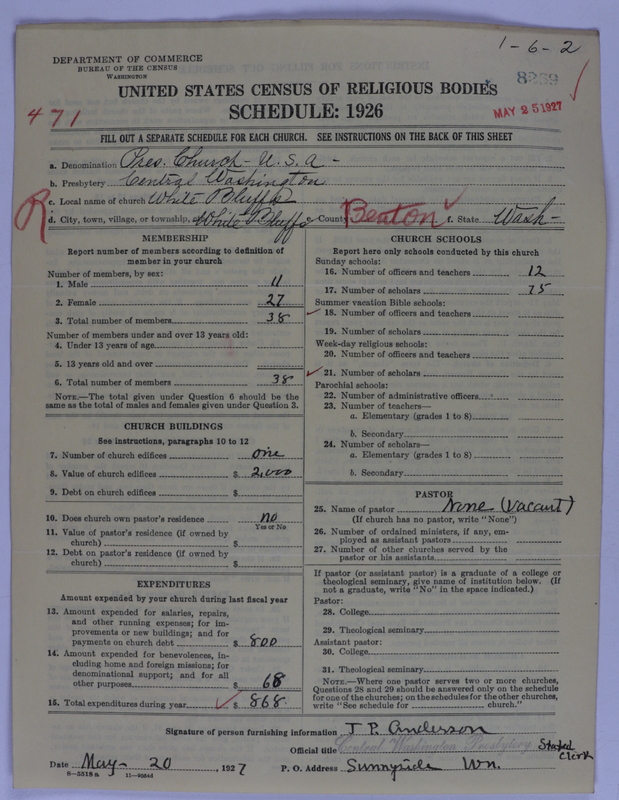 1-6-2
DEPARTMENT OF COMMERCE
BUREAU OF THE CENSUS
WASHINGTON
8239
MAY 25 1927
UNITED STATES CENSUS OF RELIGIOUS BODIES
471
SCHEDULE: 1926
FILL OUT A SEPARATE SCHEDULE FOR EACH CHURCH. SEE INSTRUCTIONS ON THE BACK OF THIS SHEET
a. Denomination Pres. Church - U.S.A -
b. Presbytery Central Washington
c. Local name of church White Bluffs
R
d. City, town, village, or township, White Bluffs County Benton f. State Wash-
MEMBERSHIP
Report number of members according to definition of
member in your church
Number of members, by sex:
1. Male 11
2. Female 27
3. Total number of members 38
Number of members under and over 13 years old:
4. Under 13 years of age
5. 13 years old and over
6. Total number of members 38
NOTE.—The total given under Question 6 should be the
same as the total of males and females given under Question 3.
CHURCH BUILDINGS
See instructions, paragraphs 10 to 12
7. Number of church edifices one
8. Value of church edifices $ 2,000
9. Debt on church edifices $
10. Does church own pastor's residence no
Yes or No
11. Value of pastor's residence (if owned by
church) $
12. Debt on pastor's residence (if owned by
church) $
EXPENDITURES
Amount expended by your church during last fiscal year
13. Amount expended for salaries, repairs,
and other running expenses; for im-
provements or new buildings; and for
payments on church debt $ 800
14. Amount expended for benevolences, in-
cluding home and foreign missions; for
denominational support; and for all
other purposes $ 68
15. Total expenditures during year $ 868.
CHURCH SCHOOLS
Report here only schools conducted by this church
Sunday schools:
16. Number of officers and teachers 12
17. Number of scholars 75
Summer vacation Bible schools:
18. Number of officers and teachers
19. Number of scholars
Week-day religious schools:
20. Number of officers and teachers
21. Number of scholars
Parochial schools:
22. Number of administrative officers
23. Number of teachers—
a. Elementary (grades 1 to 8)
b. Secondary
24. Number of scholars—
a. Elementary (grades 1 to 8)
b. Secondary
PASTOR
25. Name of pastor None (Vacant)
(If church has no pastor, write "None")
26. Number of ordained ministers, if any, em-
ployed as assistant pastors
27. Number of other churches served by the
pastor or his assistants
If pastor (or assistant pastor) is a graduate of a college or
theological seminary, give name of institution below. (If
not a graduate, write "No" in the space indicated.)
Pastor:
28. College
29. Theological seminary
Assistant pastor:
30. College
31. Theological seminary
NOTE.—Where one pastor serves two or more churches,
Questions 28 and 29 should be answered only on the schedule
for one of the churches; on the schedules for the other churches,
write "See schedule for church."
Signature of person furnishing information J. P. Anderson
Official title Central Washington Presbytery Stated
Clerk
Date May- 20, 1927 P. O. Address Sunnyside Wn.
8—5518a